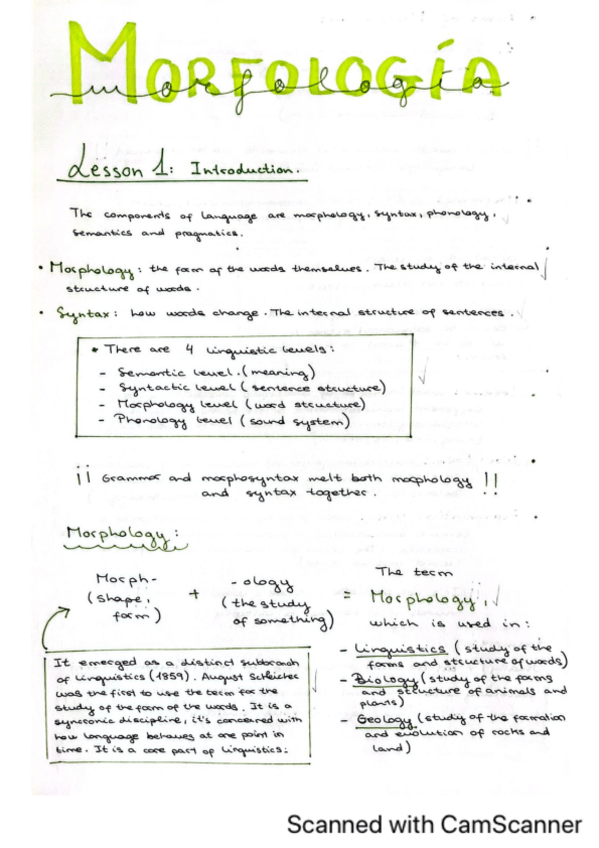 MORFOLOGÍA
morfología
Lesson 1: Introduction.
The components of language are morphology, syntax, phonology,
semantics and pragmatics.
• Morphology: the form of the words themselves. The study of the internal
structure of words.
• Syntax: how words change. The internal structure of sentences.
• There are 4 linguistic levels:
- Semantic level. (meaning)
- Syntactic level (sentence structure)
- Morphology level (word structure)
- Phonology level (sound system)
¡¡ Grammar and morphosyntax melt both morphology !!
and syntax together.
Morphology:
Morph-
(shape,
form)
+
-ology
(the study
of something)
=
The term
Morphology,
which is used in:
- Linguistics (study of the
forms and structure of words)
- Biology (study of the forms
and structure of animals and
plants)
- Geology (study of the formation
and evolution of rocks and
land)
It emerged as a distinct subbranch
of Linguistics (1859). August Schleicher
was the first to use the term for the
study of the form of the words. It is a
syncronic discipline, it's concerned with
how language behaves at one point in
time. It is a core part of Linguistics.
Scanned with CamScanner